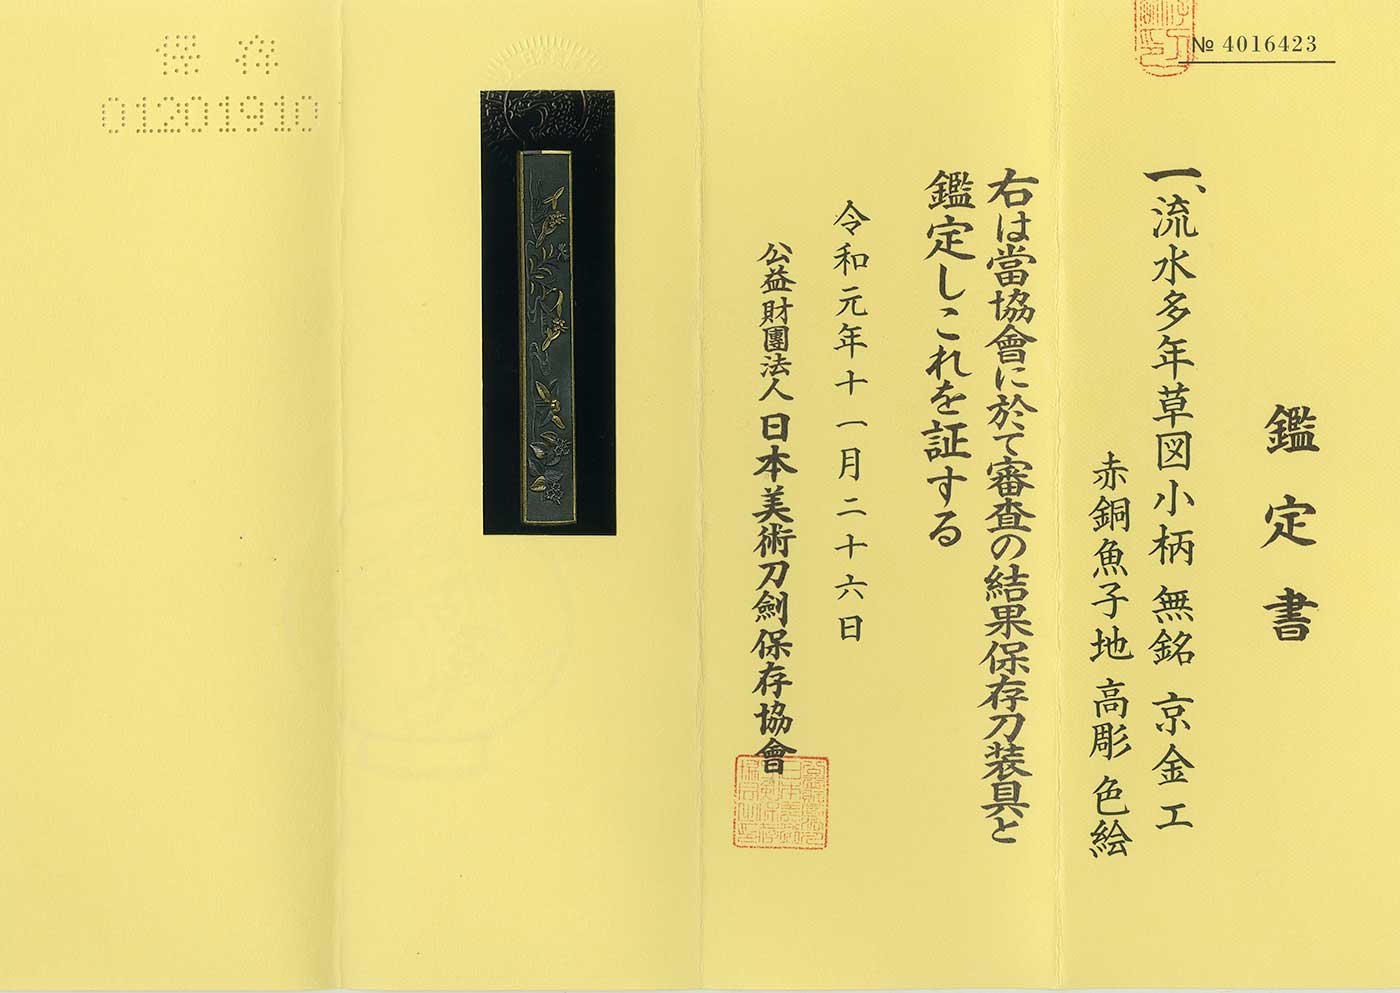 № 4016423
鑑定書
一、流水多年草図小柄 無銘 京金工
赤銅魚子地 高彫 色絵
右は當協會に於て審査の結果保存刀装具と
鑑定しこれを証する
令和元年十一月二十六日
公益財團法人 日本美術刀劍保存協會
保存
01201910